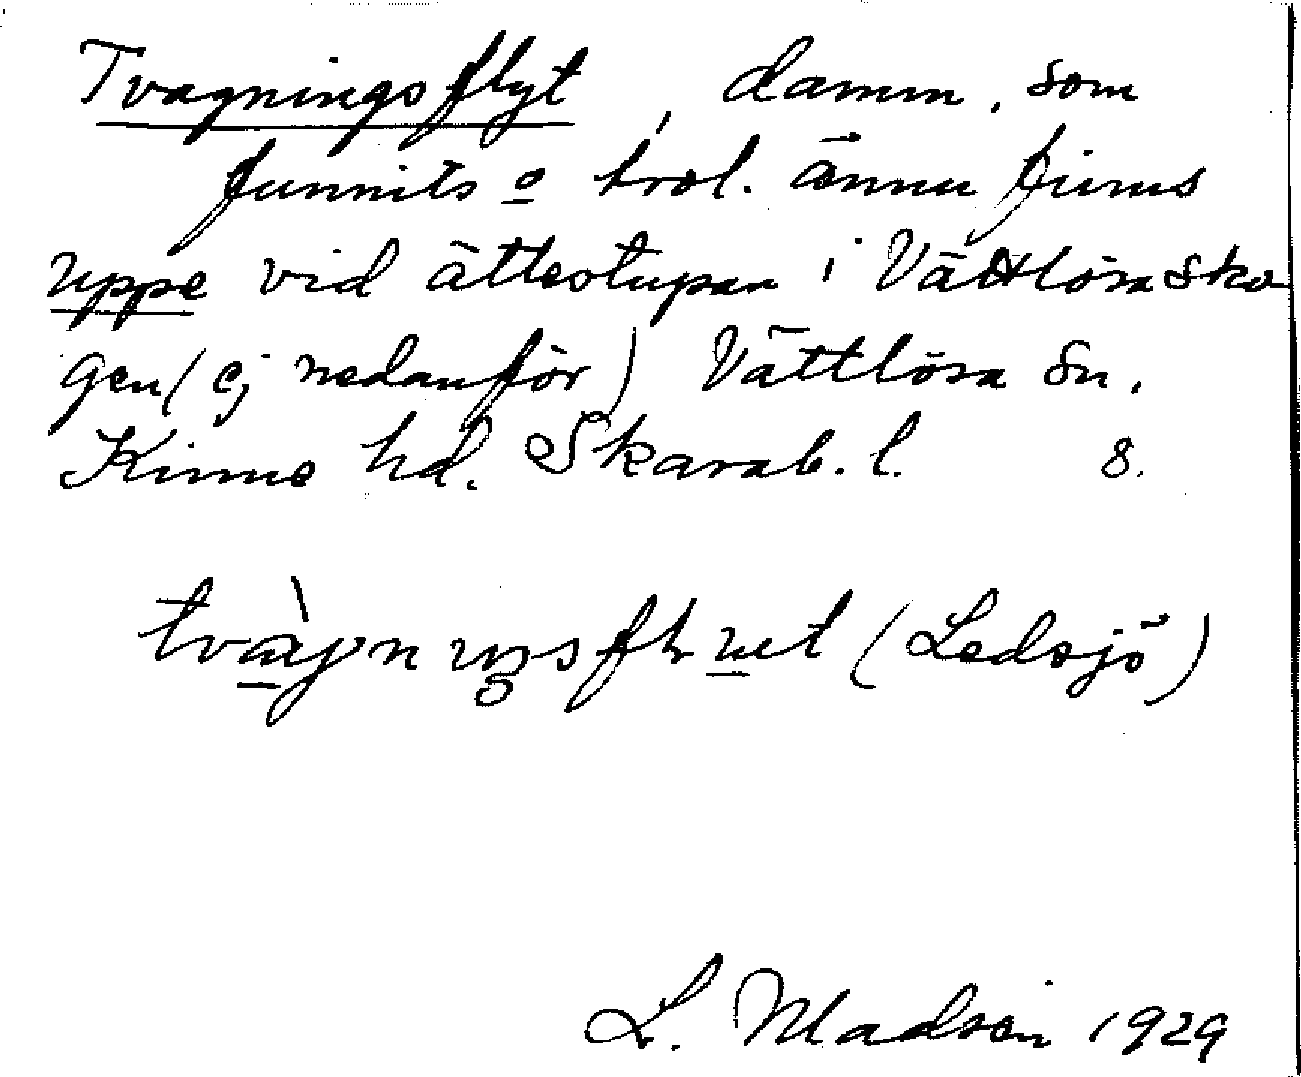 Tvagningsflyt, damm, som
funnits o trol. ännu finns
uppe vid ättestupan i Vättlösa sko
gen (ej nedanför) Vättlösa sn.
Kinne hd. Skarab. l. 8.
(Ledsjö)
L. Madsén 1929